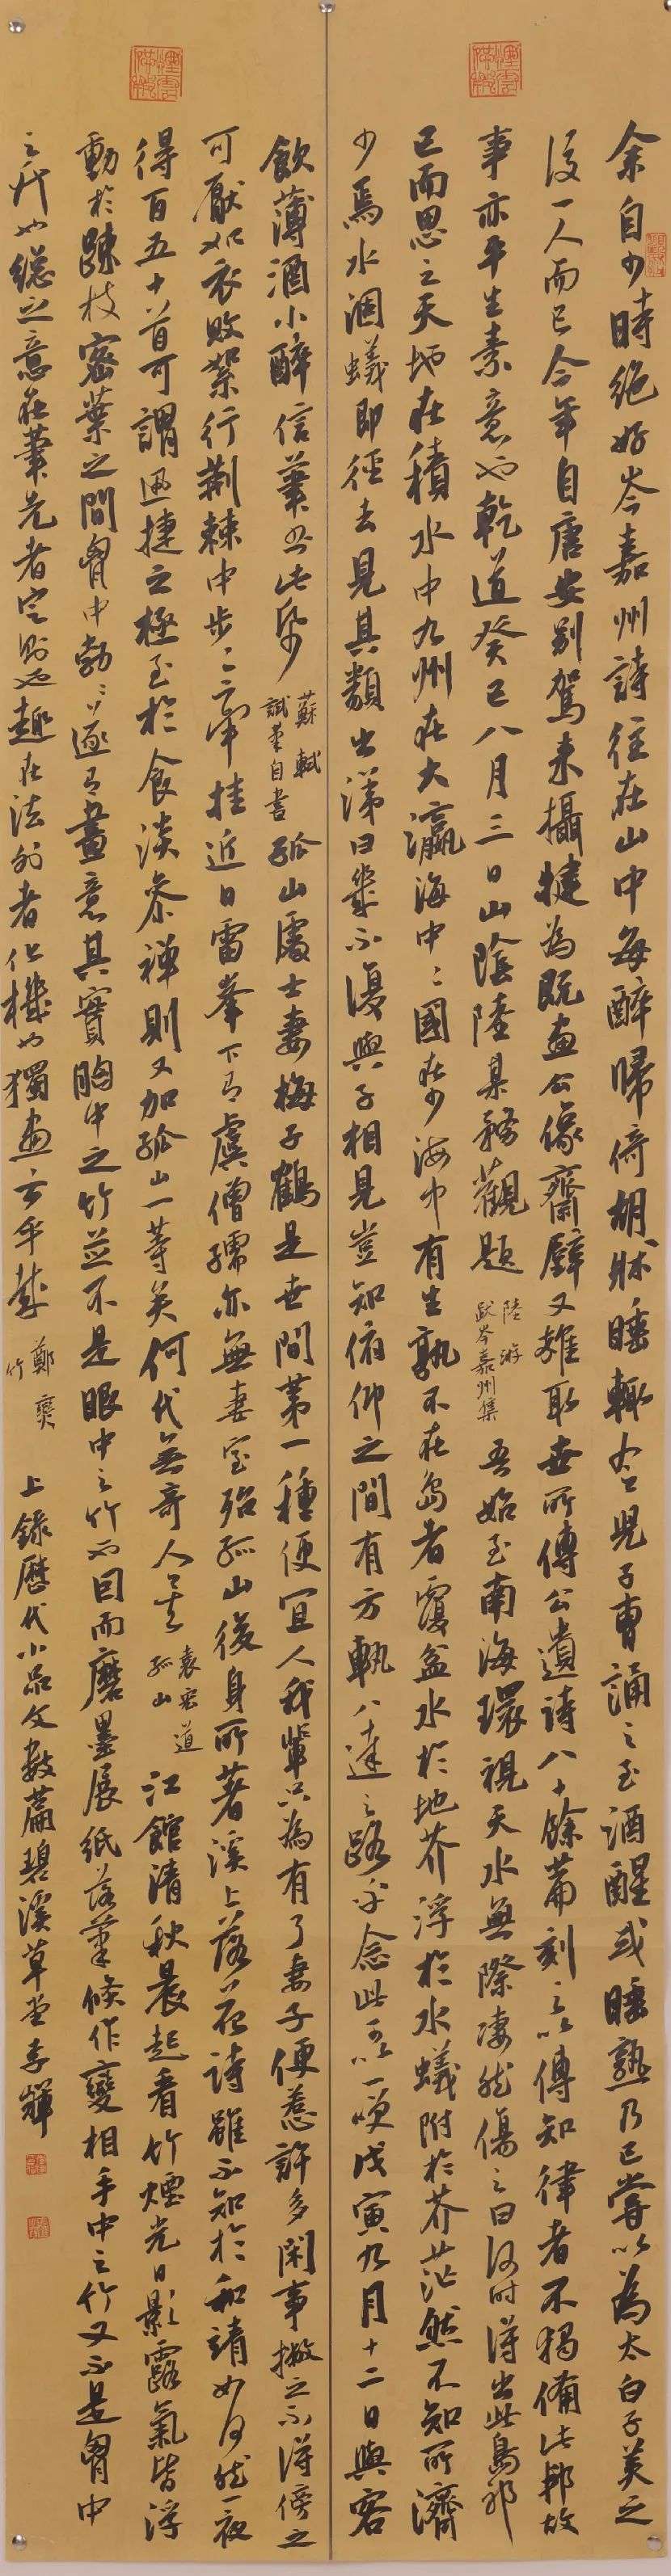 余自少時絕好岑嘉州詩往在山中每醉歸倚胡牀睡輒令兒子曹誦之至酒醒或睡熟乃已嘗以為太白子美之
後一人而已今年自唐安別駕來攝犍為既畫公像齋壁又雜取世所傳公遺詩八十餘篇刻之以傳知律者不獨備此邦故
事亦平生素意也乾道癸巳八月三日山陰陸某務觀題 陸游跋岑嘉州集 吾始至南海環視天水無際淒然傷之曰何時得出此島耶
已而思之天地在積水中九州在大瀛海中中國在少海中有生孰不在島者覆盆水於地芥浮於水蟻附於芥茫然不知所濟
少焉水涸蟻即徑去見其類出涕曰幾不復與子相見豈知俯仰之間有方軌八達之路乎念此可以一笑戊寅九月十二日與客
飲薄酒小醉信筆書此紙 蘇軾試筆自書 孤山處士妻梅子鶴是世間第一種便宜人我輩只為有了妻子便惹許多閑事撇之不得傍之
可厭如衣敗絮行荆棘中步步牽挂近日雷峯下有虞僧孺亦無妻室殆孤山後身所著溪上落花詩雖不知於和靖如何然一夜
得百五十首可謂迅捷之極至於食淡參禪則又加孤山一等矣何代無奇人哉 袁宏道孤山 江館清秋晨起看竹煙光日影露氣皆浮
動於疎枝密葉之間胷中勃勃遂有畫意其實胸中之竹並不是眼中之竹也因而磨墨展紙落筆倏作變相手中之竹又不是胷中
之竹也總之意在筆先者定則也趣在法外者化機也獨畫云乎哉 鄭燮竹 上錄歷代小品文數篇碧溪草堂李輝